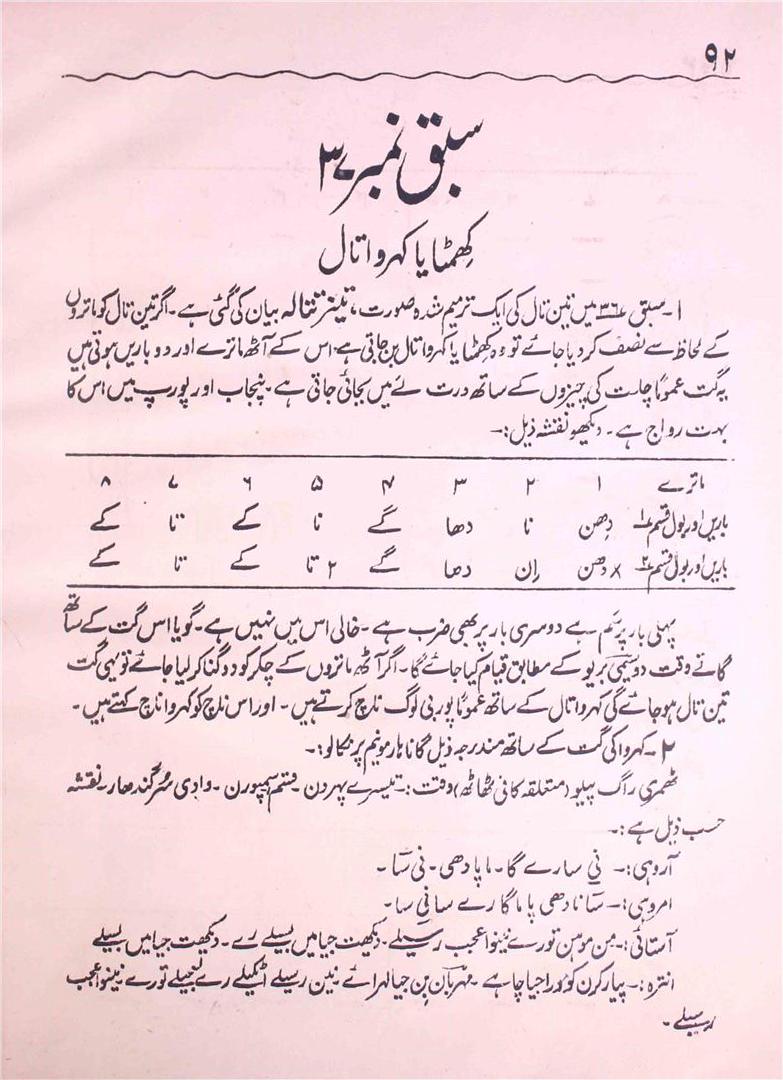 ۹۲
سبق نمبر ۳۷
کھمٹا یا کہروا تال
۱۔ سبق ۳۶ میں تین تال کی ایک ترمیم شدہ صورت، تیز تتالہ بیان کی گئی ہے۔ اگر تین تال کو ماتروں
کے لحاظ سے نصف کر دیا جائے تو وہ کھمٹا یا کہروا تال بن جاتی ہے۔ اس کے آٹھ ماترے اور دو باریں ہوتی ہیں
یہ گت عموماً چلت کی چیزوں کے ساتھ درت لے میں بجائی جاتی ہے۔ پنجاب اور پورپ میں اس کا
بہت رواج ہے۔ دیکھو نقشہ ذیل:۔
ماترے ۱ ۲ ۳ ۴ ۵ ۶ ۷ ۸
باریں اور بول قسم ۱ دھن نا دھا گے نا کے تا کے
باریں اور بول قسم ۲ × دھن ران دھا گے ۲ تا کے تا کے
پہلی بار پر سَم ہے دوسری بار پر بھی ضرب ہے۔ خالی اس میں نہیں ہے۔ گویا اس گت کے ساتھ
گاتے وقت دو سیمی بریو کے مطابق قیام کیا جائے گا۔ اگر آٹھ ماتروں کے چکر کو دوگنا کر لیا جائے تو یہی گت
تین تال ہو جائے گی کہروا تال کے ساتھ عموماً پوربی لوگ ناچ کرتے ہیں۔ اور اس ناچ کو کہروا ناچ کہتے ہیں۔
۲۔ کہروا کی گت کے ساتھ مندرجہ ذیل گانا ہارمونیم پر نکالو:۔
ٹھمری راگ پیلو (متعلقہ کافی ٹھاٹھ) وقت:۔ تیسرے پہر دن۔ قسم سمپورن۔ وادی سُر گندھار۔ نقشہ
حسب ذیل ہے:۔
آروہی:۔ نی سا رے گا۔ ما پا دھی۔ نی سا۔
امروہی:۔ سا نا دھی پا ما گا رے سا نی سا۔
آستائی:۔ من موہن تورے نینوا عجب رسیلے۔ دیکھت جیا میں بسیلے رے۔ دیکھت جیا میں بسیلے
انترہ:۔ پیار کرن کو مورا جیا چاہے۔ مہربان بن جیا لہرائے نین رسیلے اٹکیلے رے لجیلے تورے نینوا عجب
رسیلے۔